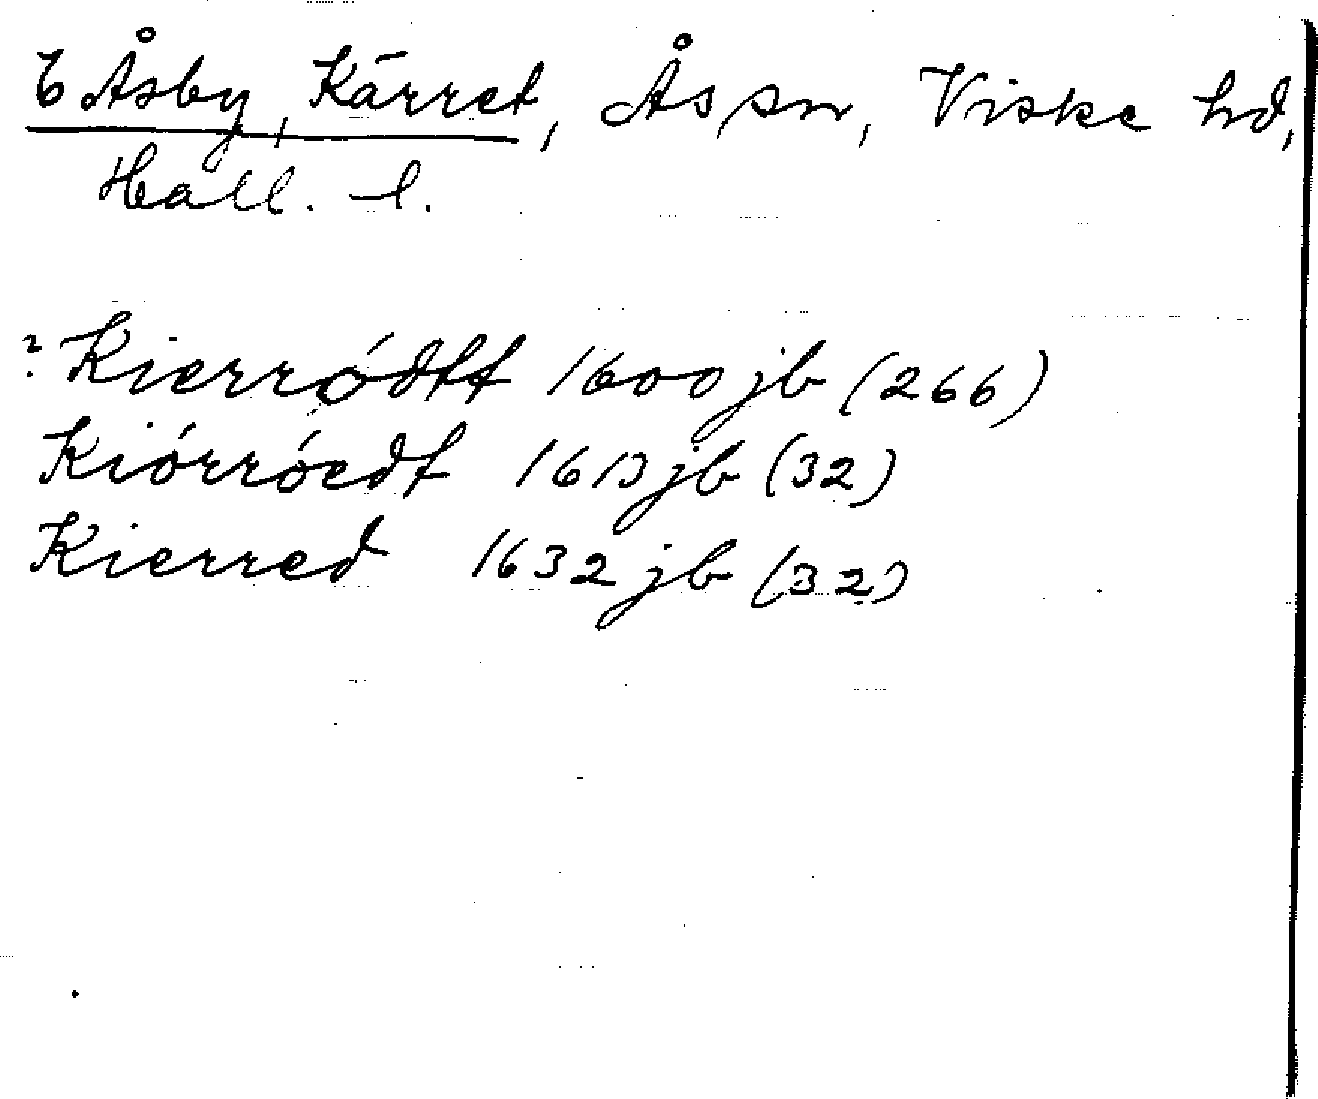 t Åsby, Kärret, Ås sn, Viske hd,
Hall. l.
? Kierródtt 1600 jb (266)
Kiórróedt 1613 jb (32)
Kierred 1632 jb (32)